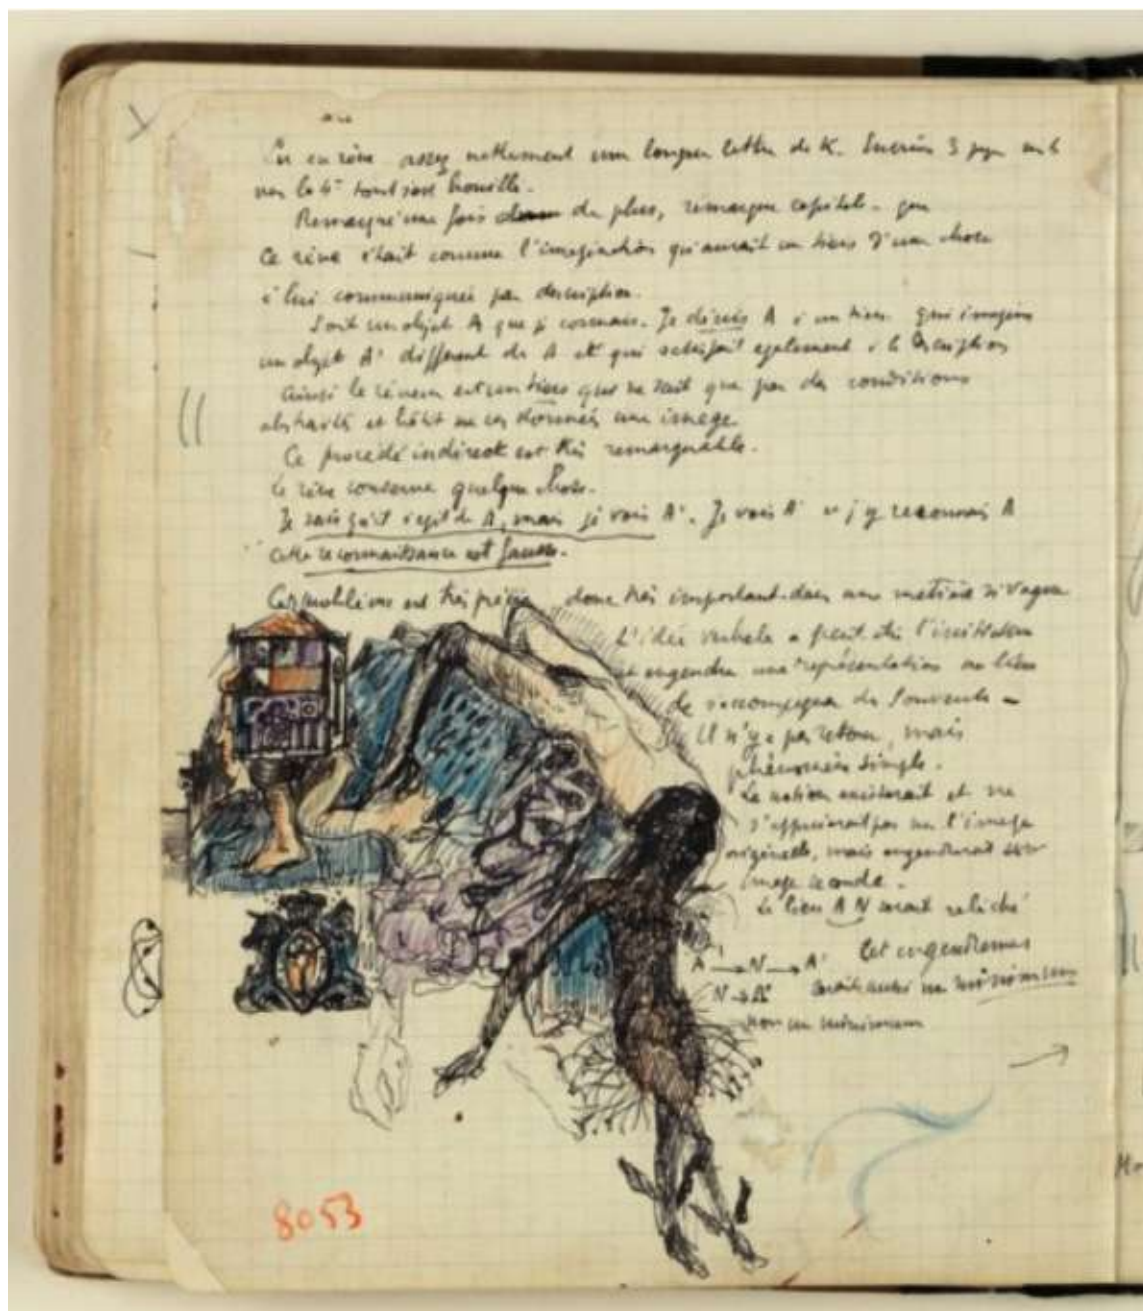 en rêve assez nettement une longue lettre de K. Environ 3 pages
vers la 4e tout se brouille.
Remarqué une fois de plus, remarque capitale - que
Ce rêve était comme l'imagination qu'aurait un tiers d'une chose
à lui communiquée par description.
Soit un objet A que je connais. Je décris A à un tiers qui imagine
un objet A' différent de A et qui satisfait également à la description
Ainsi le rêveur est un tiers qui ne sait que par des conditions
abstraites et bâtit sur ces données une image
Ce procédé indirect est très remarquable.
Le rêve conserve quelque chose.
Je sais qu'il s'agit de A, mais je vois A'. Je vois A' et j'y reconnais A
Cette reconnaissance est fausse.
est très précis donc très important dans une matière si vague
L'idée verbale a peut-être l'
et engendre une représentation au lieu
de s'accompagner du souvenir -
Il n'y a pas retour, mais
phénomène simple.
La notion existerait et ne
s'appuierait pas sur l'image
originelle, mais engendrerait une
image seconde.
Le lien A N serait relâché
A → N → A' Cet engendremen
N → A' serait aussi un minimum
non un minimum
8053